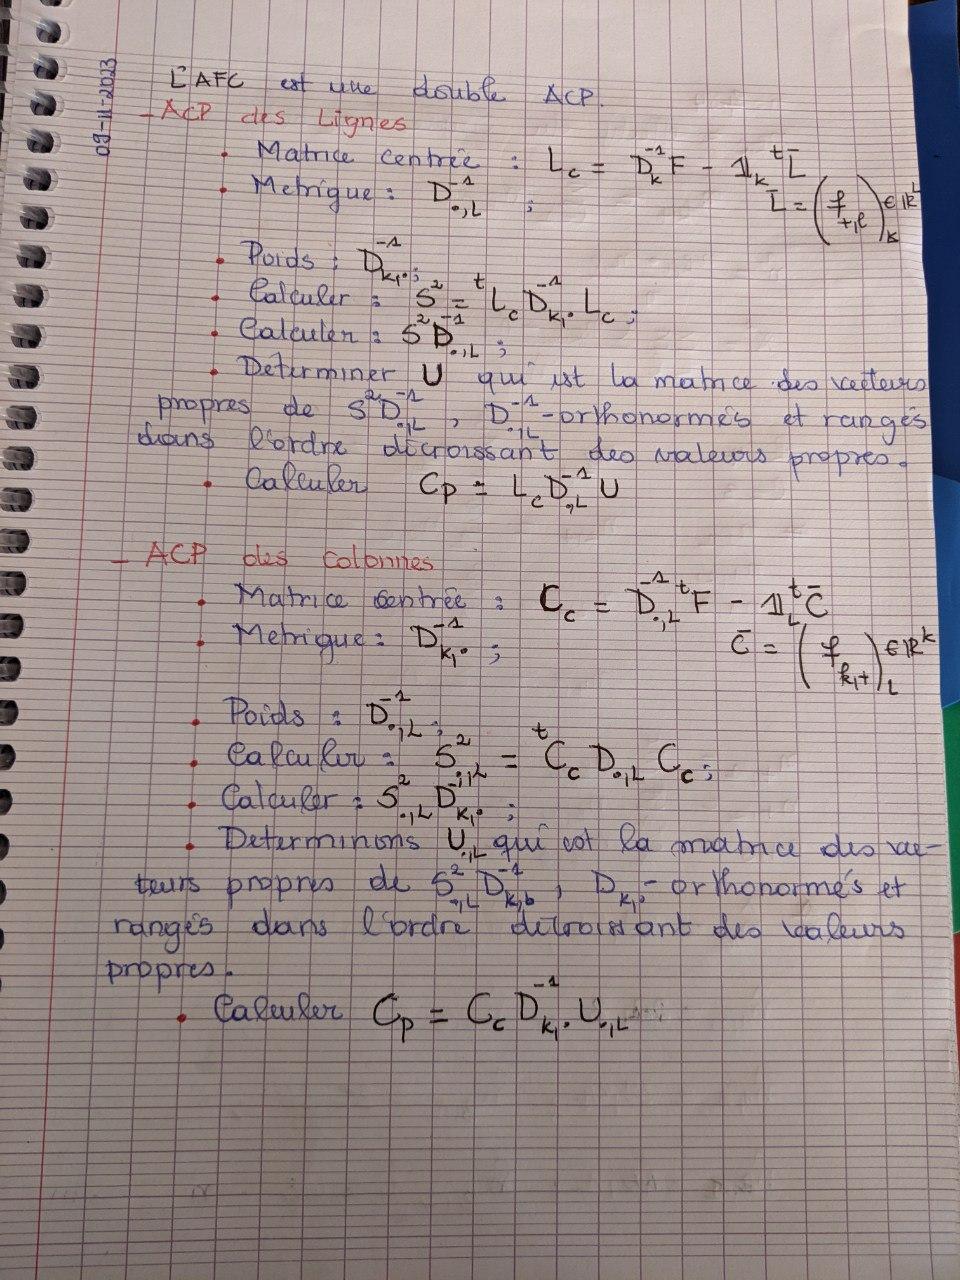 09-11-2023
L'AFC est une double ACP.
- ACP des Lignes
• Matrice centrée : L_c = D_k^{-1} F - 1_k ^tL̄
L̄ = (f_{+,l})_k ∈ ℝ^L
• Metrique : D_{•,L}^{-1} ;
• Poids : D_{k,•}^{-1} ;
• Calculer : S^2 = ^tL_c D_{k,•}^{-1} L_c ;
• Calculer : S^2 D_{•,L}^{-1} ;
• Determiner U qui est la matrice des vecteurs
propres de S^2 D_{•,L}^{-1}, D_{•,L}^{-1}-orthonormés et rangés
dans l'ordre décroissant des valeurs propres.
• Calculer Cp = L_c D_{•,L}^{-1} U
- ACP des Colonnes
• Matrice centrée : C_c = D_{•,L}^{-1} ^tF - 1_L ^tC̄
• Metrique : D_{k,•}^{-1} ;
C̄ = (f_{k,+})_L ∈ ℝ^k
• Poids : D_{•,L}^{-1} ;
• Calculer : S^2_{•,L} = ^tC_c D_{•,L} C_c ;
• Calculer : S^2_{•,L} D_{k,•}^{-1} ;
• Determinons U_{•,L} qui est la matrice des vec-
teurs propres de S^2_{•,L} D_{k,•}^{-1}, D_{k,•}-orthonormés et
rangés dans l'ordre décroissant des valeurs
propres.
• Calculer C_p = C_c D_{k,•}^{-1} U_{•,L}